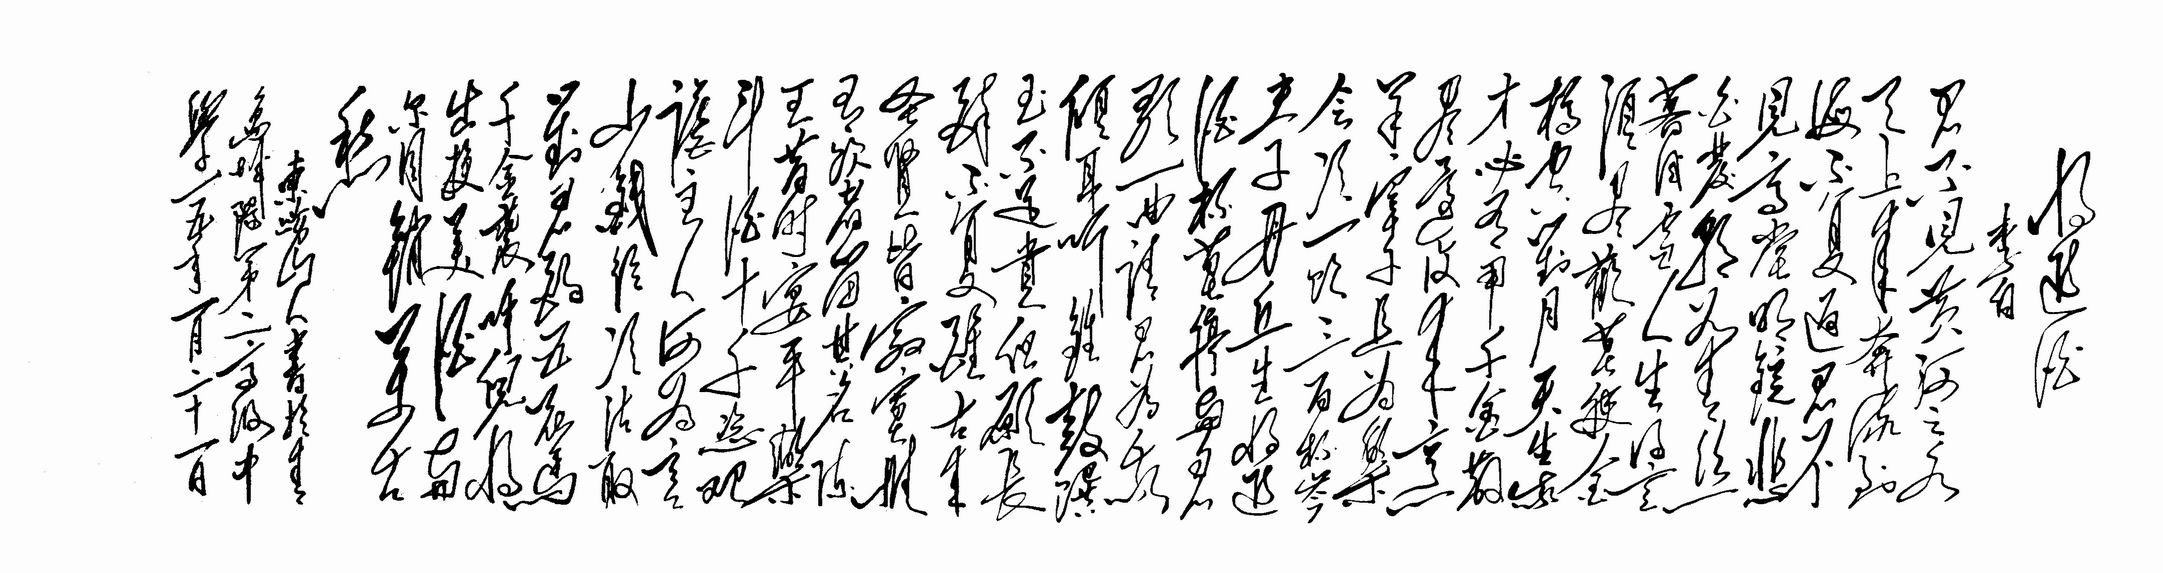 将進酒
李白
君不見黄河之水
天上來奔流到
海不復迴君不
見高堂明鏡悲
白發朝如青絲
暮成雪人生得意
須盡歡莫使金
樽空對月天生我
才必有用千金散
盡還復來烹
羊宰牛且為樂
會須一飲三百杯岑
夫子丹丘生將進
酒杯莫停與君
歌一曲請君為我
傾耳聽鐘鼓饌
玉不足貴但願長
醉不復醒古來
聖賢皆寂寞惟
有飲者留其名陳
王昔時宴平樂
斗酒十千恣歡
謔主人何為言
少錢徑須沽取
對君酌五花馬
千金裘呼兒將
出換美酒與
爾同銷萬古
愁
東嶗山人書於青
島城陽第二高級中
學一五年一月二十一日